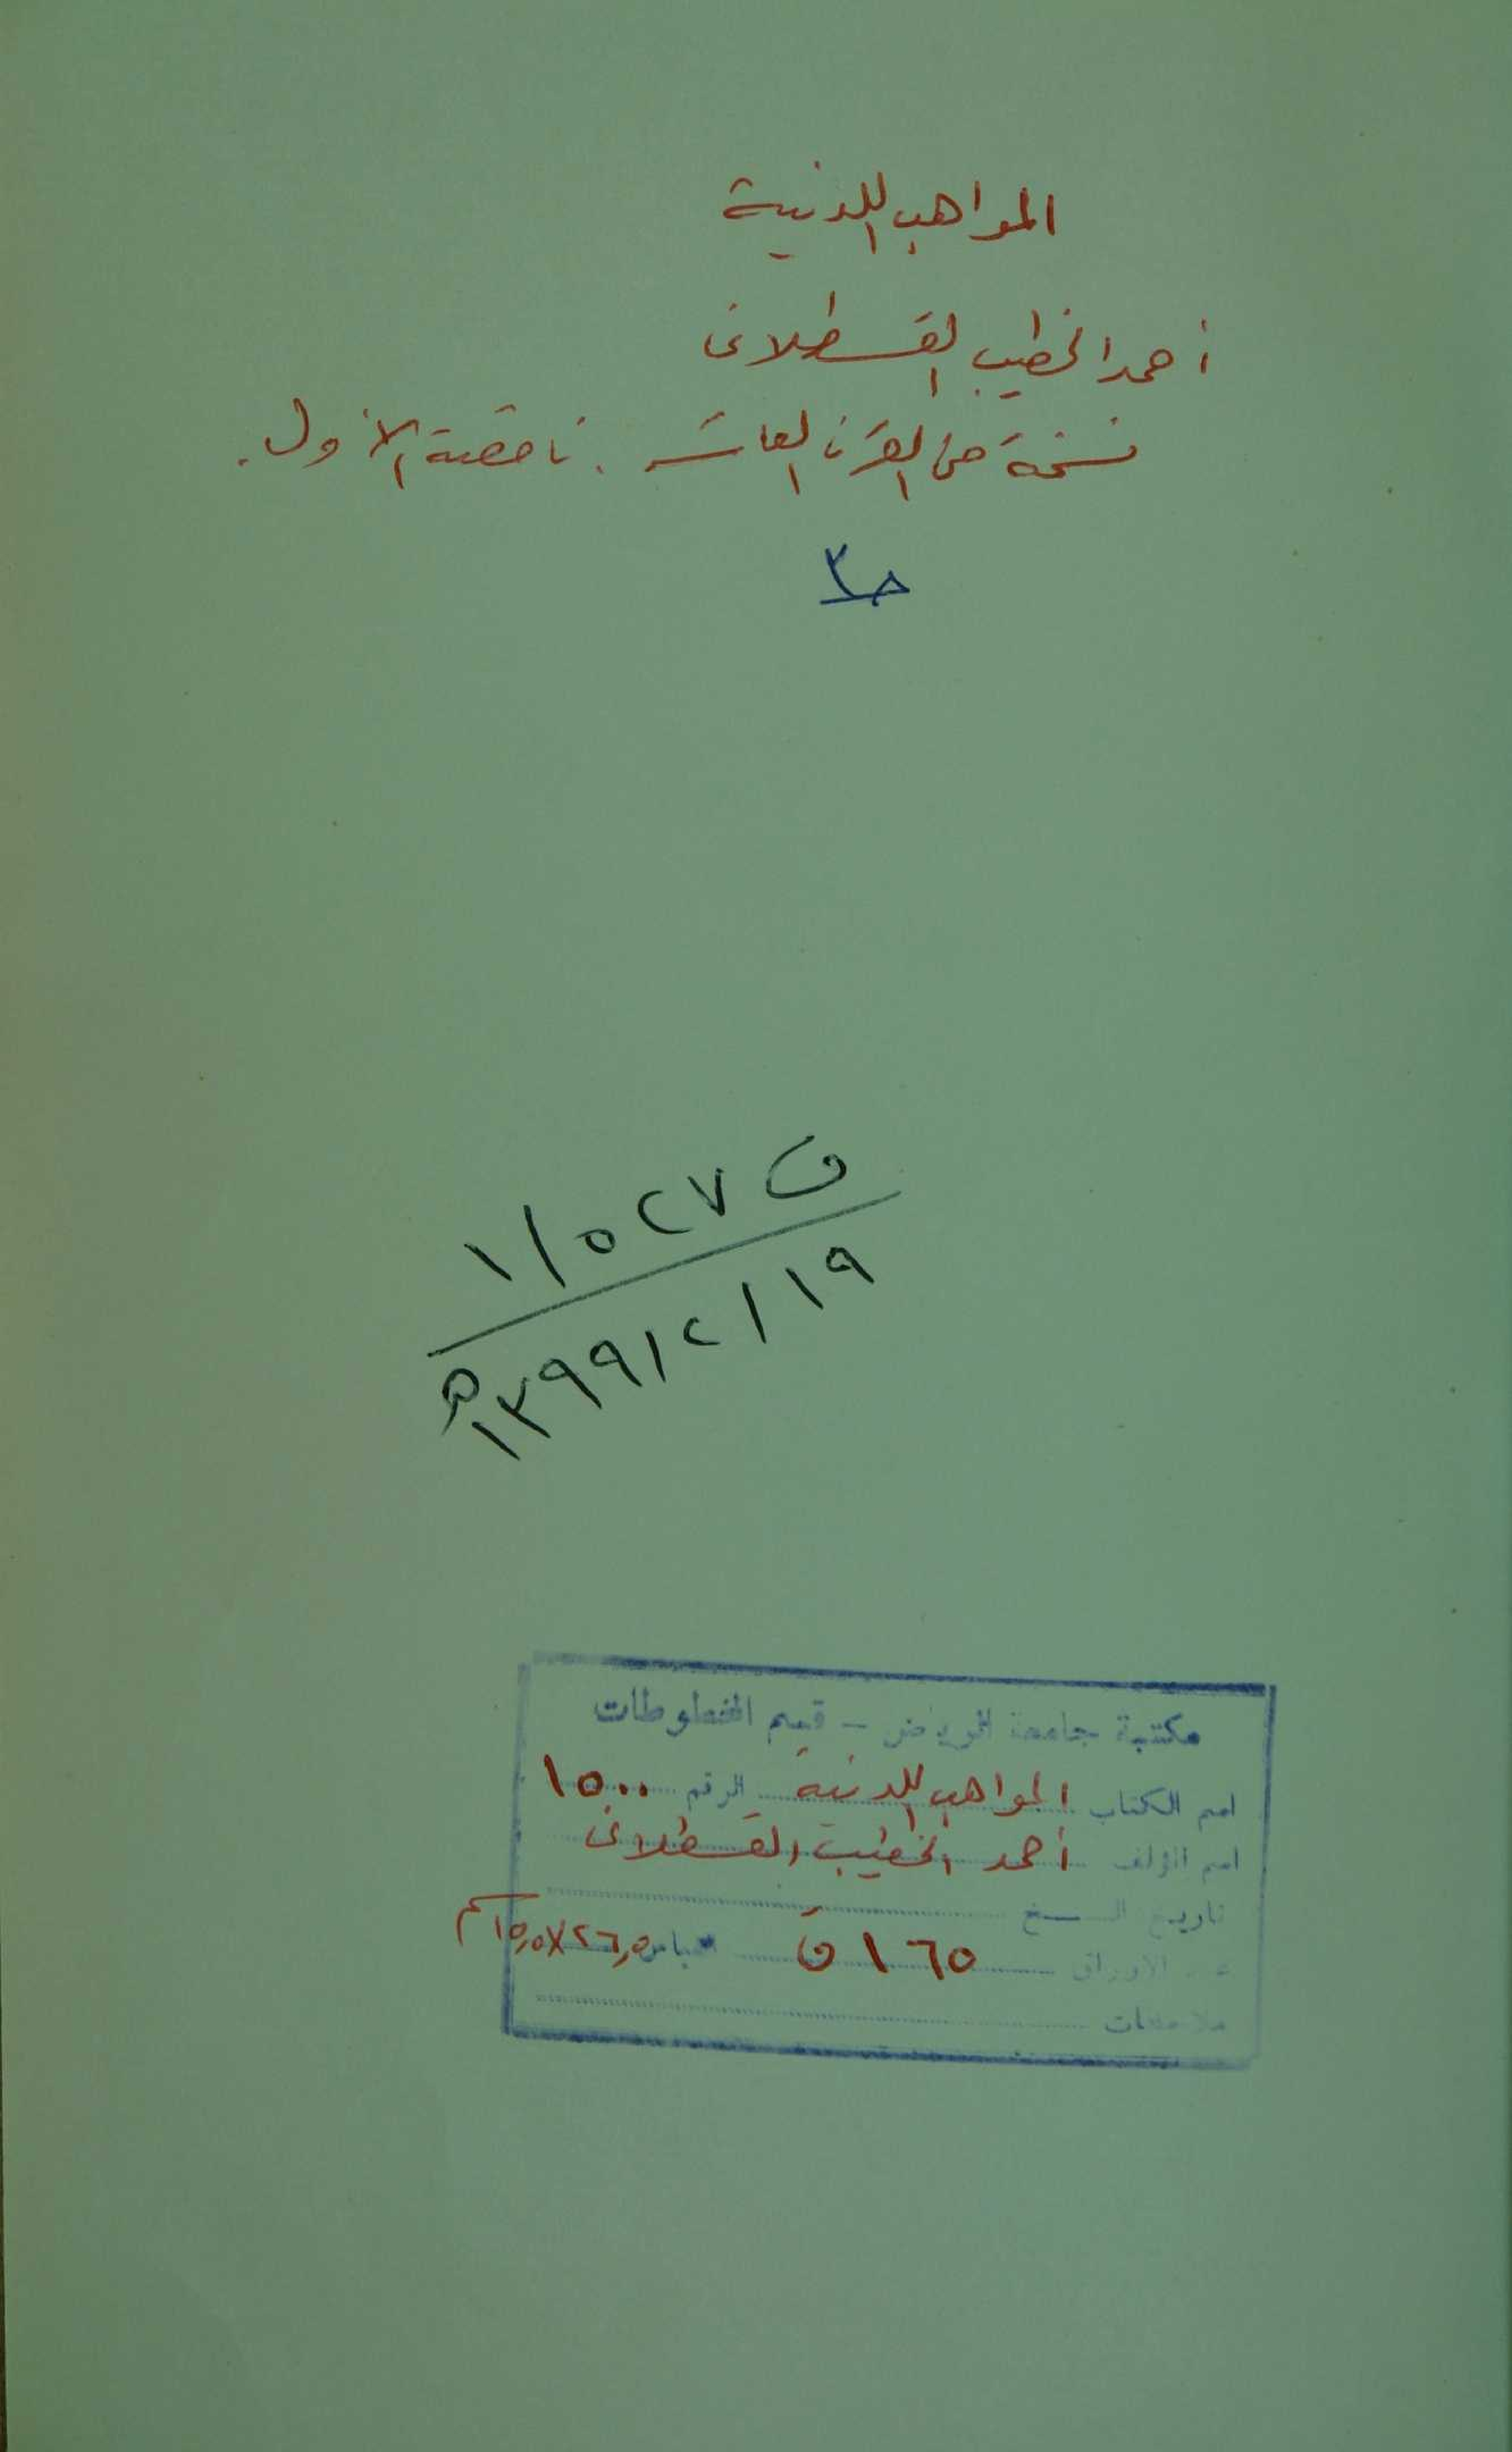 المواهب اللدنية
أحمد الخطيب القسطلانى
نسخة من القرن العاشر . ناقصة الأول .
حـ٢
ف ٥٢٧/١
١٣٩٩/٢/١٩هـ
مكتبة جامعة الرياض - قسم المخطوطات
اسم الكتاب المواهب اللدنية الرقم ١٥٠٠
اسم المؤلف أحمد الخطيب القسطلانى
تاريخ النسخ
عدد الأوراق ١٦٥ ق قياس ٢٦,٥×١٥,٥ سم
ملاحظات